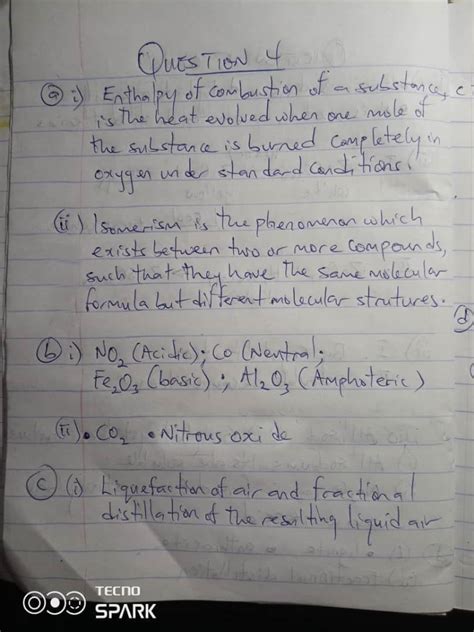 QUESTION 4
(a) i) Enthalpy of combustion of a substance,
is the heat evolved when one mole of
the substance is burned completely in
oxygen under standard conditions.
(ii) Isomerism is the phenomenon which
exists between two or more compounds,
such that they have the same molecular
formula but different molecular strutures.
(b) i) NO₂ (Acidic); CO (Neutral;
Fe₂O₃ (basic); Al₂O₃ (Amphoteric)
(ii) • CO₂ • Nitrous oxide
(c) (i) Liquefaction of air and fractional
distillation of the resulting liquid air
c
d
TECNO
SPARK